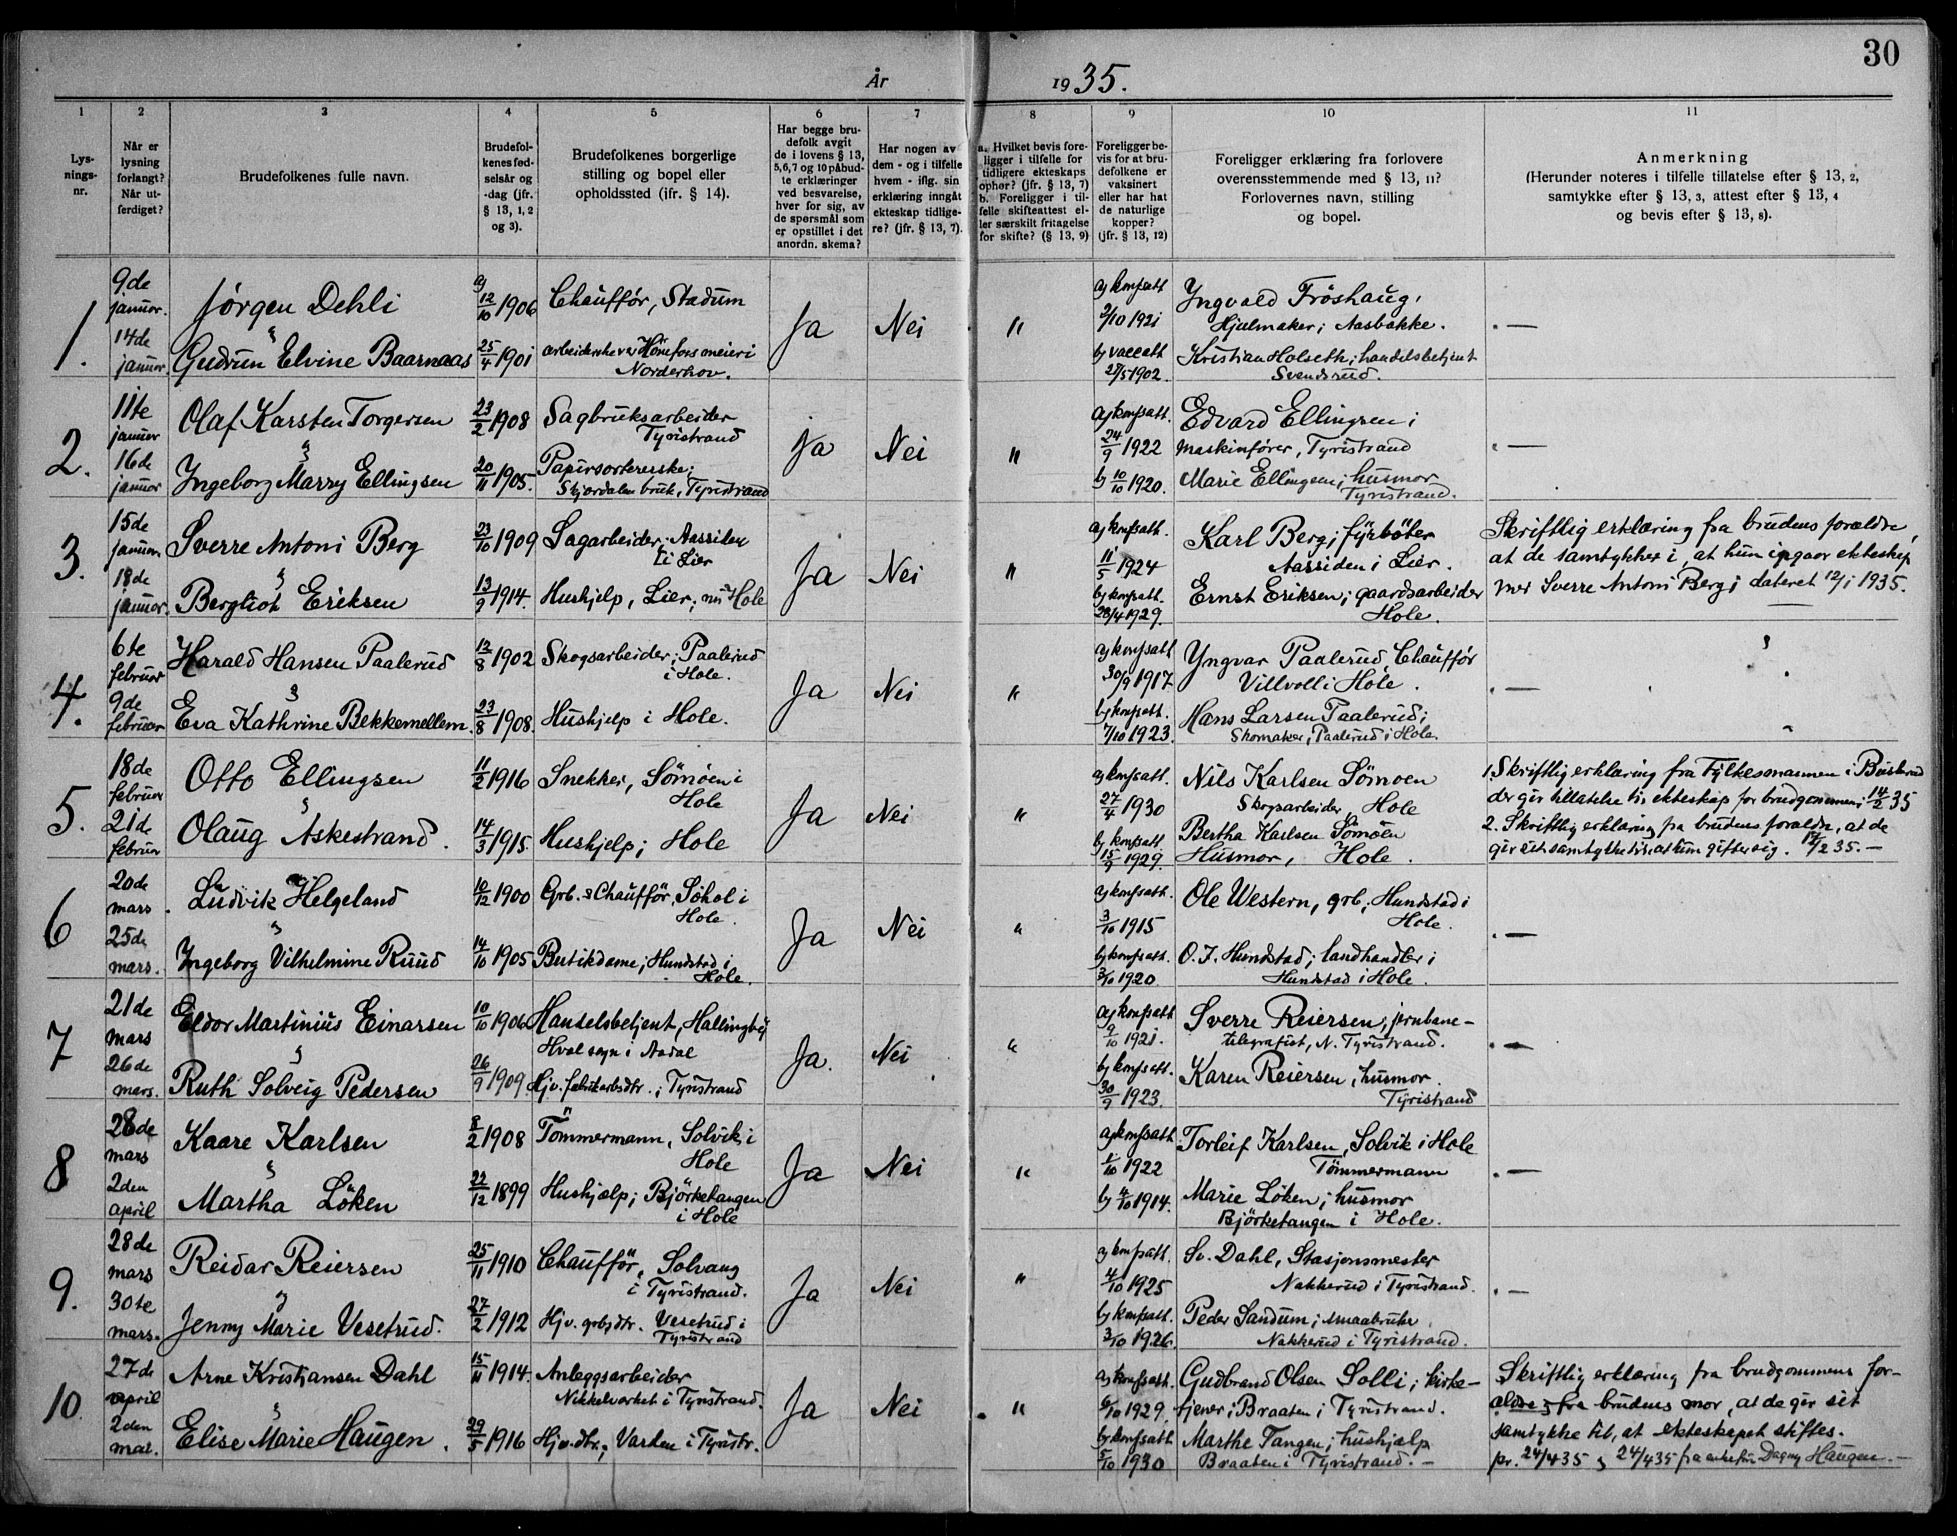 30
År 1935.
1 2 3 4 5 6 7 8 9 10 11
Lysningsnr.
Når er lysning forlangt? Når utferdiget?
Brudefolkenes fulle navn.
Brudefolkenes fødselsår og -dag (jfr. § 13, 1, 2 og 3).
Brudefolkenes borgerlige stilling og bopel eller opholdssted (ifr. § 14).
Har begge brudefolk avgit de i lovens § 13, 5, 6, 7 og 10 påbudte erklæringer ved besvarelse, hver for sig, av de spørsmål som er opstillet i det anordn. skema?
Har nogen av dem - og i tilfelle hvem - iflg. sin erklæring inngåt ekteskap tidligere? (jfr. § 13, 7).
a. Hvilket bevis foreligger i tilfelle for tidligere ekteskaps ophør? (jfr. § 13, 7) b. Foreligger i tilfelle skifteattest eller særskilt fritagelse for skifte? (§ 13, 9)
Foreligger bevis for at brudefolkene er vaksinert eller har hat de naturlige kopper? (jfr. § 13, 12)
Foreligger erklæring fra forlovere overensstemmende med § 13, 11? Forlovernes navn, stilling og bopel.
Anmerkning
(Herunder noteres i tilfelle tillatelse efter § 13, 2, samtykke efter § 13, 3, attest efter § 13, 4 og bevis efter § 13, 8).
1. 9de januar. 14de januar.
Jørgen Dehli 12/10 1906 Chauffør, Stadum
&
Gudrun Elvine Baarnaas 25/4 1901 arbeiderske ver Hønefoss meieri Norderhov.
Ja Nei "
a) konfsatt 2/10 1921
b) vaccatt 27/5 1902.
Yngvald Frøshaug, Hjulmaker; Aasbakke.
Kristian Holseth; handelsbetjent Svendsrud.
. —
2. 11te januar 16de januar
Olaf Karsten Torgersen 23/2 1908 Sagbruksarbeider Tyristrand
&
Ingeborg Marry Ellingsen 20/11 1905. Papirsortererske; Skjærdalen bruk, Tyristrand
Ja Nei "
a) konfsatt. 24/9 1922
b) 10/10 1920.
Edvard Ellingsen; maskinfører, Tyristrand
Marie Ellingsen; husmor Tyristrand.
. —
3. 15de januar 18de januar.
Sverre Antoni Berg 23/10 1909 Sagarbeider, Aassiden i Lier
&
Bergliot Eriksen 13/9 1914. Hushjelp, Lier; nu Hole
Ja Nei "
a) konfsatt. 11/5 1924
b) konfsatt. 28/4 1929.
Karl Berg; fyrbøter Aassiden i Lier.
Ernst Eriksen; gaardsarbeider Hole.
Skriftlig erklæring fra brudens forældre, at de samtykker i, at hun ingaar ekteskap mer Sverre Antoni Berg; dateret 12/1 1935.
4. 6te februar 9de februar
Harald Hansen Paalerud 12/8 1902 Skogsarbeider; Paalerud i Hole.
&
Eva Kathrine Bekkemellem. 23/8 1908. Hushjelp i Hole.
Ja Nei "
a) konfsatt 30/9 1917
b) konfsatt. 7/10 1923.
Yngvar Paalerud, Chauffør Villvoll i Hole.
Hans Larsen Paalerud; Skomaker, Paalerud i Hole.
. —
5. 18de februar 21de februar
Otto Ellingsen 11/2 1916 Snekker, Sømøen i Hole
&
Olaug Askestrand. 14/3 1915. Hushjelp; Hole
Ja Nei "
a) konfsatt. 27/4 1930
b) konfsatt 15/9 1929.
Nils Karlsen Sømoen Skogsarbeider, Hole
Bertha Karlsen Sømoen Husmor, Hole.
1. Skriftlig erklæring fra Fylkesmannen i Buskerud der gir tillatelse til ekteskap for brudgommen; 14/2 35
2. Skriftlig erklæring fra brudens forældre, at de gir sit samtykke til at hun gifter sig. 17/2 35. —
6 20de mars. 25de mars.
Ludvik Helgeland 10/12 1900 Grb. & Chauffør, Sohol i Hole.
&
Ingeborg Vilhelmine Ruud 14/10 1905 Butikdame; Hundstad i Hole.
Ja Nei "
a) konfsatt. 3/10 1915
b) konfsatt. 3/10 1920.
Ole Western, grb; Hundstad i Hole.
O. J. Hundstad; landhandler i Hundstad i Hole.
. —
7 21de mars 26de mars.
Eldor Martinius Einarsen 10/10 1906 Handelsbetjent, Hallingby Hval sogn i Aadal
&
Ruth Solveig Pedersen 26/9 1909. Hjv. fabrikarbsdtr.; Tyristrand
Ja. Nei "
a) konfsatt 9/10 1921.
b) konfsatt. 30/9 1923.
Sverre Reiersen; jernbanetelegrafist, N. Tyristrand.
Karen Reiersen, husmor. Tyristrand
. —
8 28de mars 2den april
Kaare Karlsen 8/2 1908 Tømmermann, Solvik i Hole
&
Martha Løken 22/12 1899 Hushjælp; Bjørketangen i Hole
Ja Nei "
a) konfsatt 1/10 1922
b) 4/10 1914.
Torleif Karlsen, Solvik i Hole Tømmermann
Marie Løken; husmor Bjørketangen i Hole.
. —
9. 28de mars 30te mars.
Reidar Reiersen 25/11 1910 Chauffør, Solvang i Tyristrand.
&
Jenny Marie Vesetrud. 27/2 1912 Hjv. grbsdtr. Vesetrud i Tyristrand
Ja Nei "
a) konfsatt. 4/10 1925
b) konfsatt. 3/10 1926.
Sv. Dahl, Stasjonsmester Nakkerud i Tyristrand.
Peder Sandum; smaabruker Nakkerud i Tyristrand.
. —
10 27de april 2den mai.
Arne Kristiansen Dahl 15/11 1914. Anleggsarbeider Nikkelverket i Tyristrand.
&
Elise Marie Haugen. 29/5 1916 Hjv. dtr.; Varden i Tyristr.
Ja Nei "
a) konfsatt. 6/10 1929.
b) konfsatt 5/10 1930
Gudbrand Olsen Solli; kirketjener; Braaten i Tyristrand.
Marthe Tangen; hushjælp Braaten i Tyristrand. —
Skriftlig erklæring fra brudgommens forældre & fra brudens mor, at de gir sit samtykke til, at ekteskapet stiftes.
pr. 24/4 35 & 24/4 35 fra enkefru Dagny Haugen. —